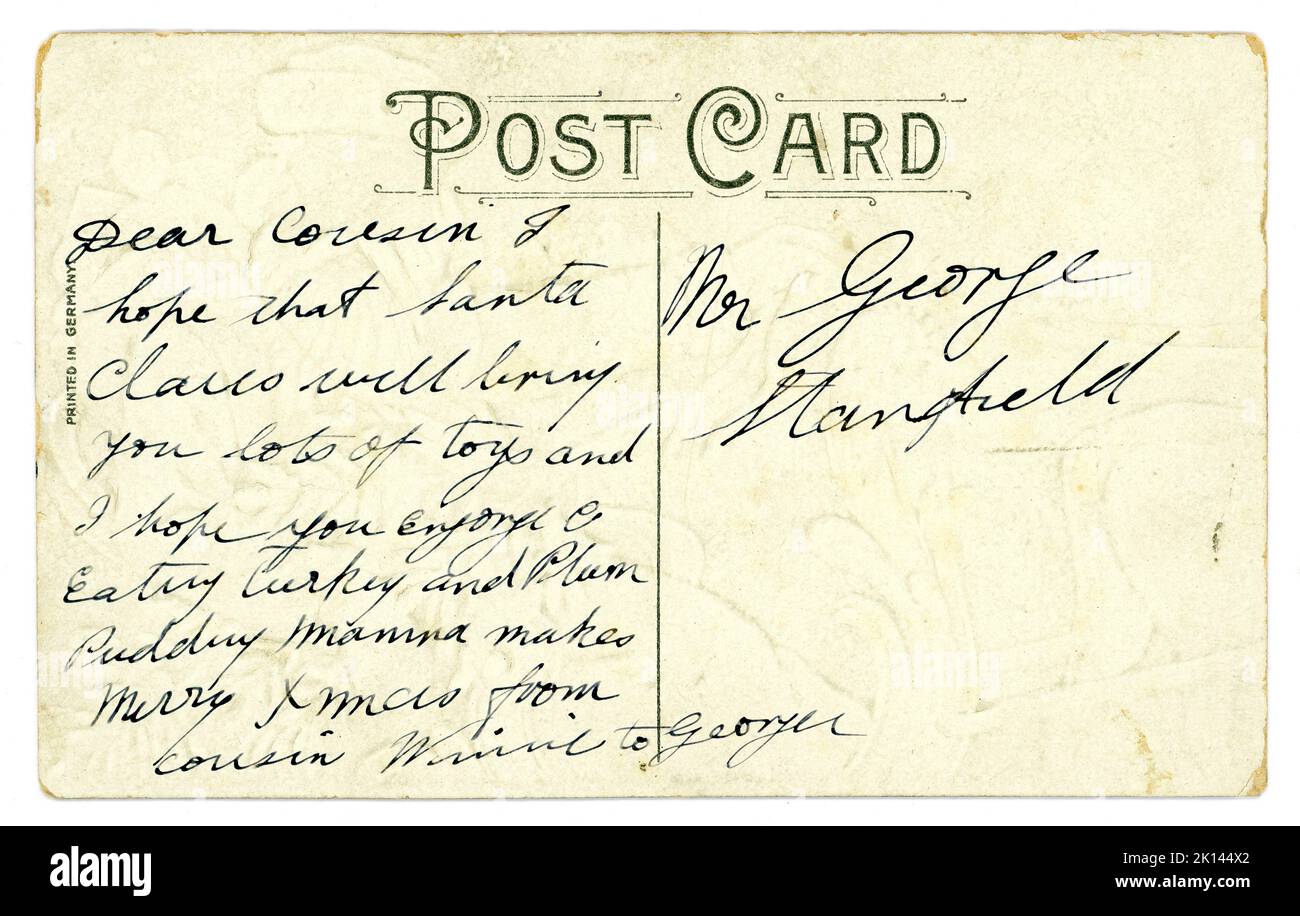 POST CARD
PRINTED IN GERMANY
Dear Cousin I
hope that Santa
Claus will bring
you lots of toys and
I hope you
Eating Turkey and Plum
Pudding Mamma makes
Merry Xmas from
cousin Winnie to George
Mr George
Stansfield
alamy
Image ID: 2K144X2
www.alamy.com